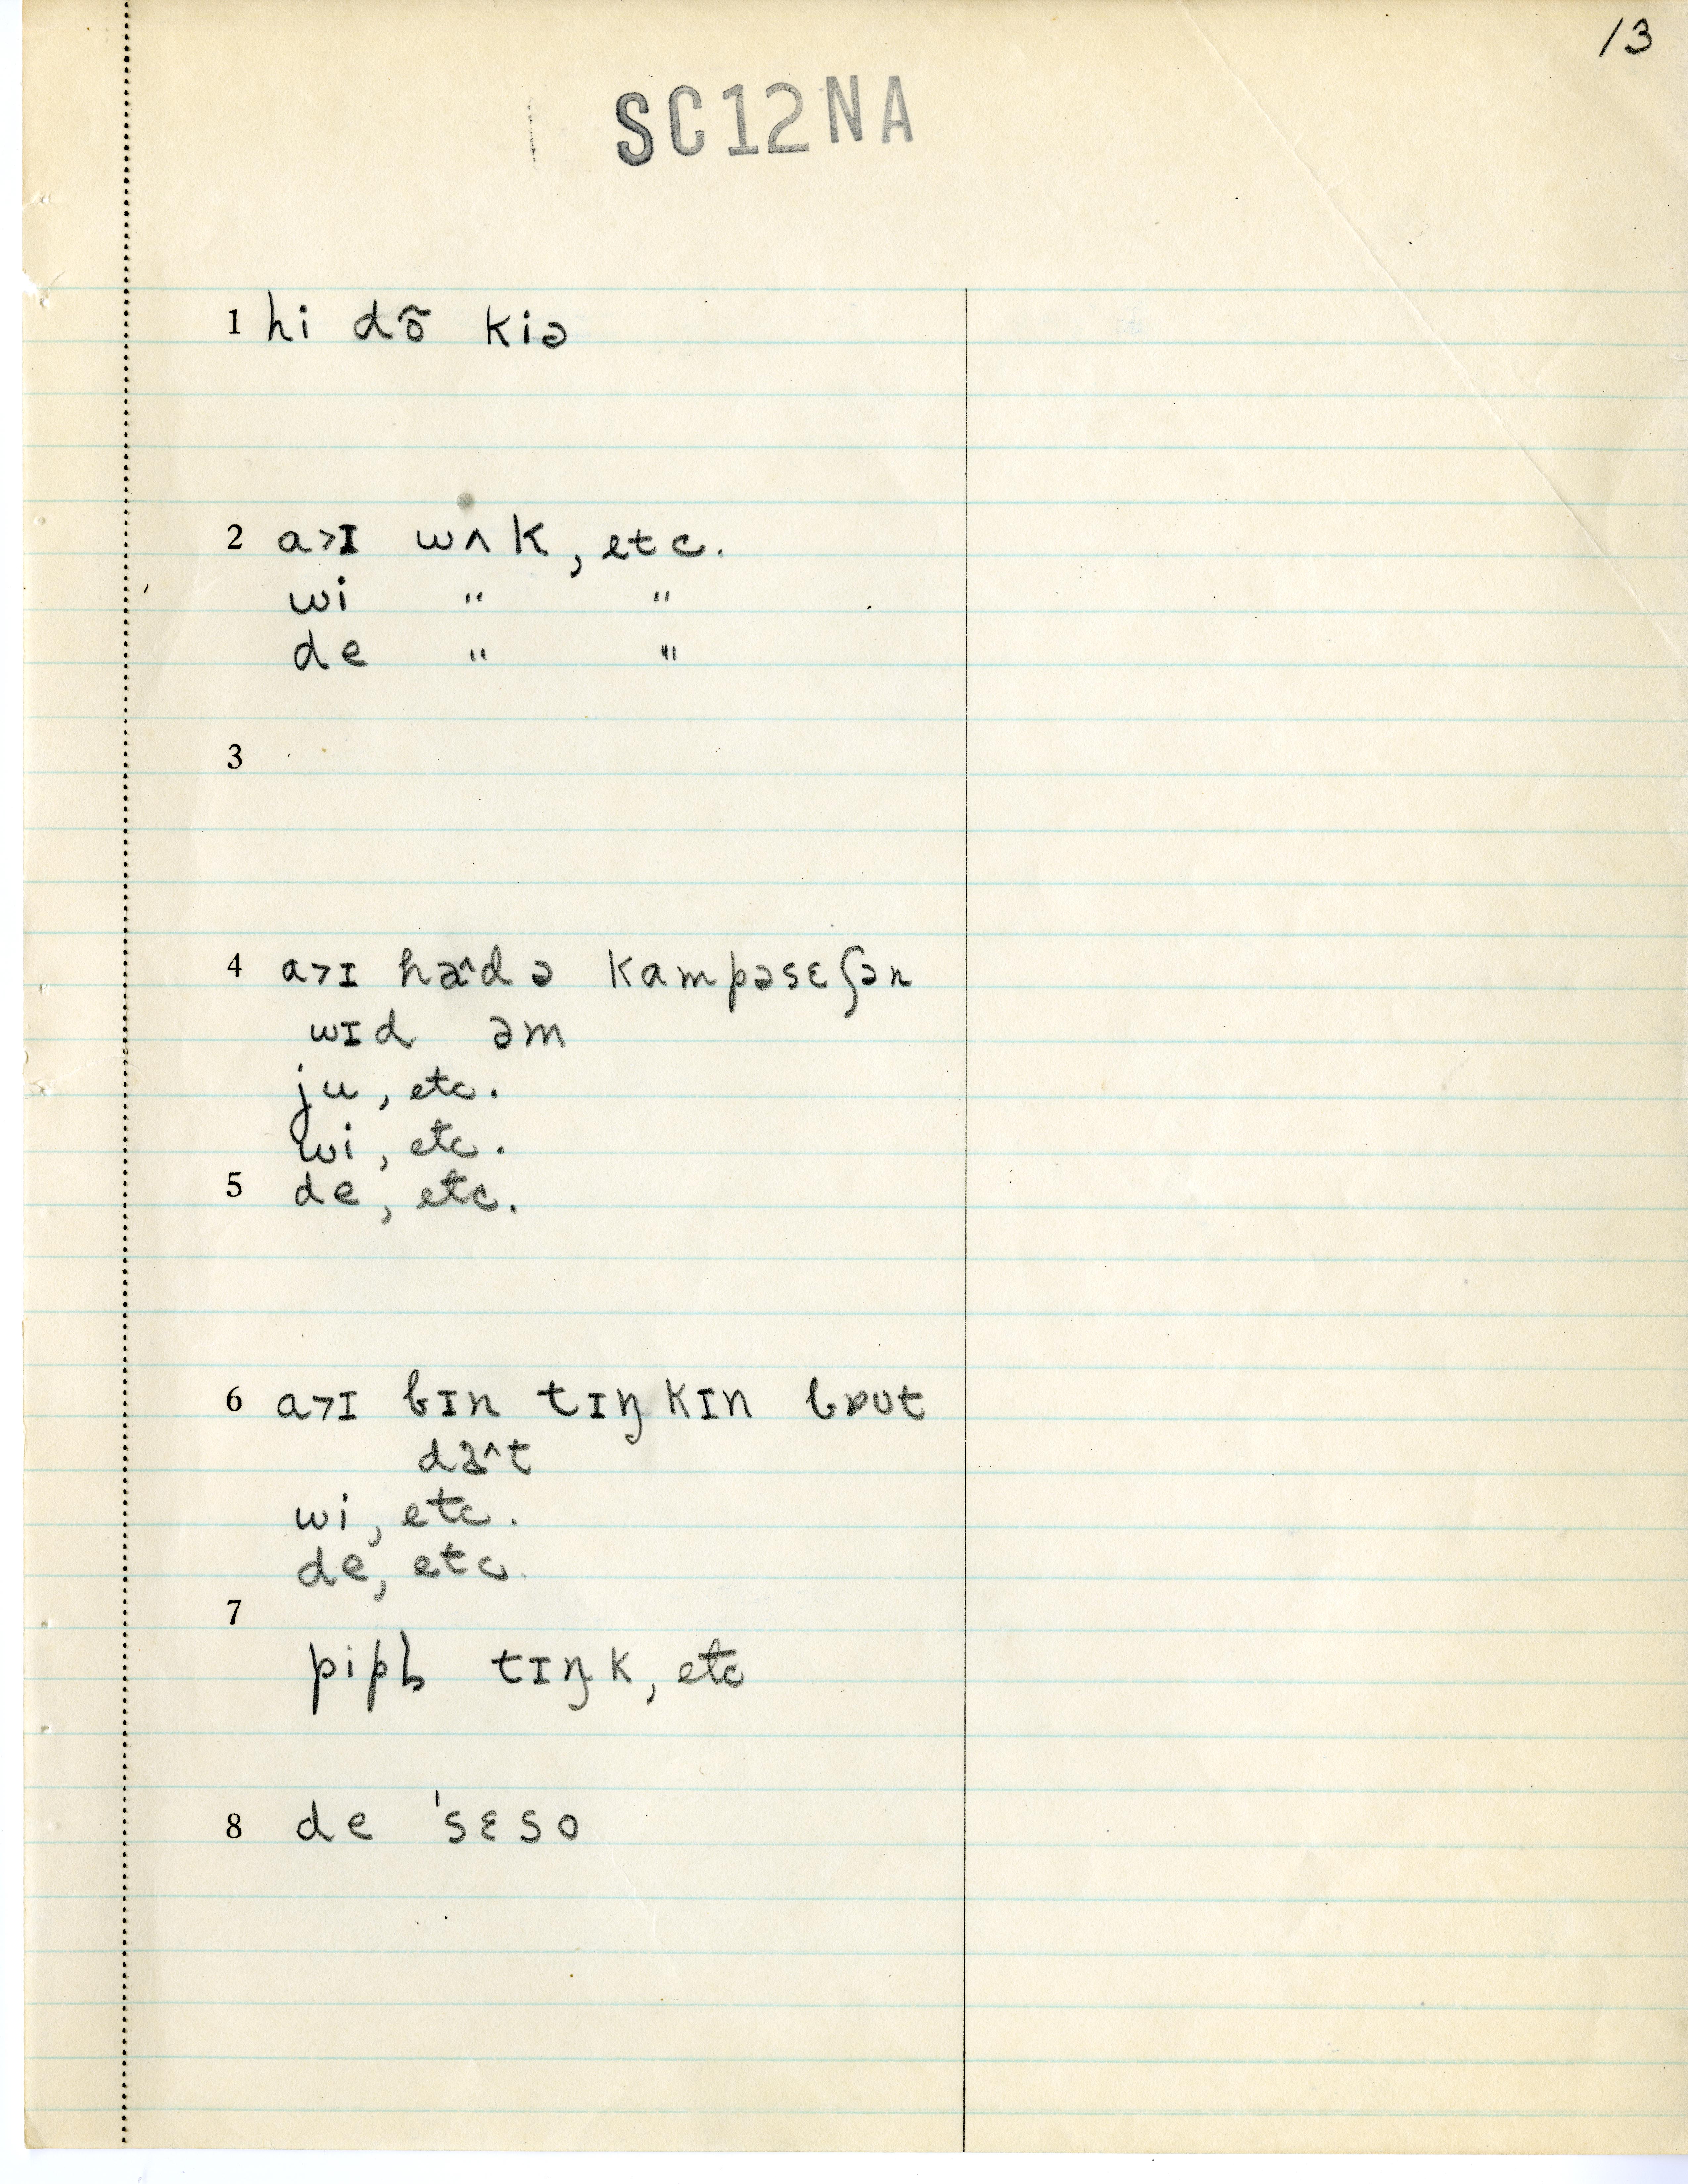 13
SC12NA
1 hi dõ kiə
2 a>ɪ wʌk, etc.
wi " "
de " "
3
4 a>ɪ hadə kampəsɛʃən
wɪd əm
ju, etc.
wi, etc.
5 de, etc.
6 a>ɪ bɪn tɪŋkɪn bɒʊt
wi, etc.
de, etc.
7
pipḷ tɪŋk, etc
8 de ˈsɛso